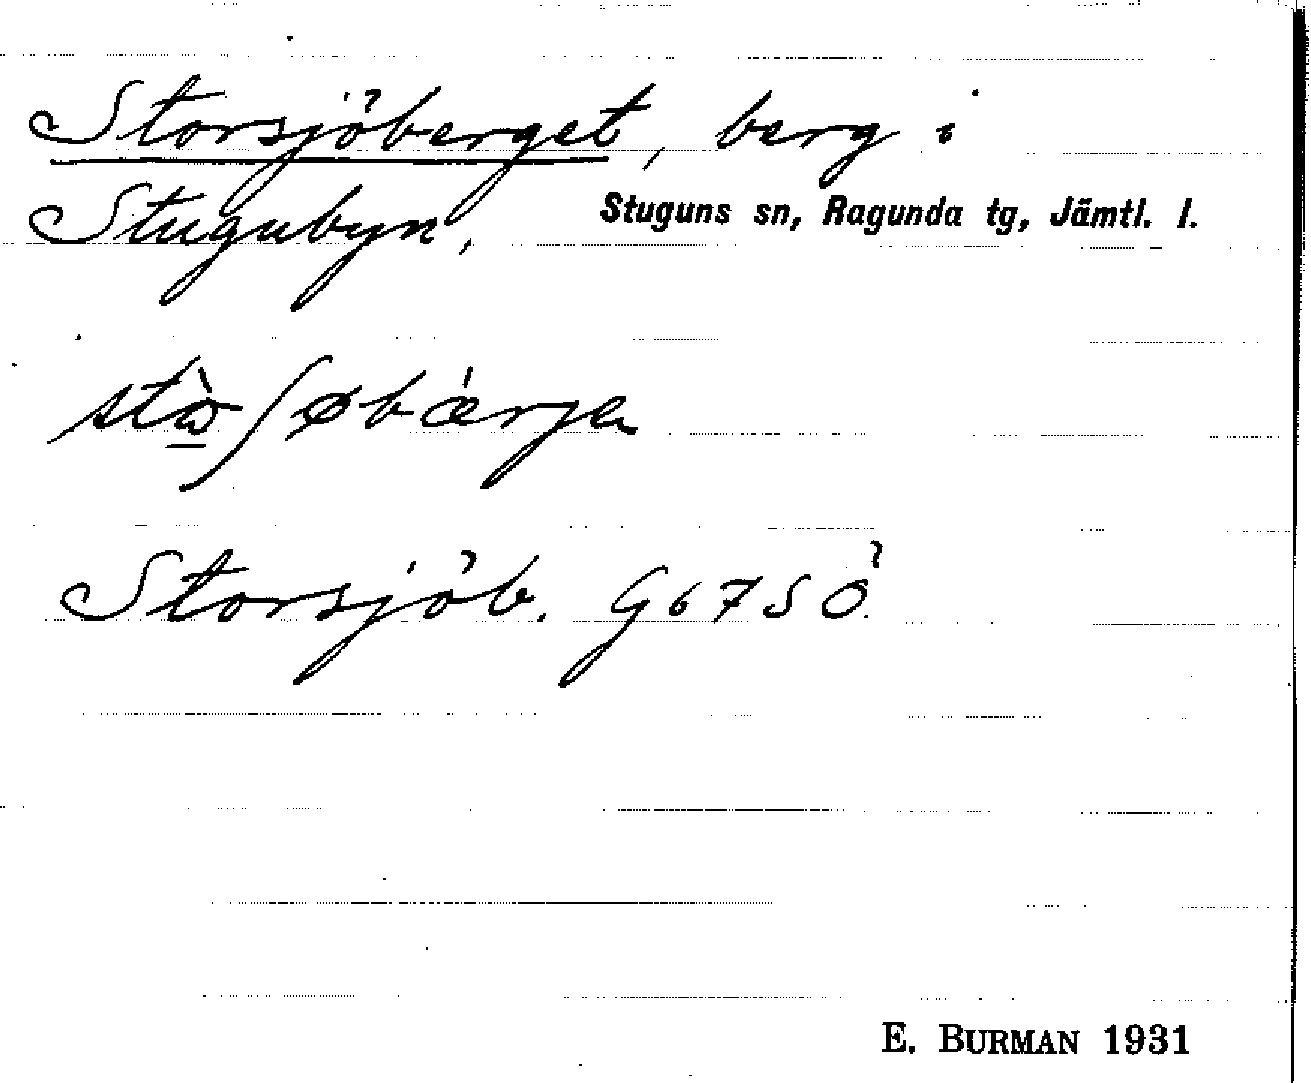 Storsjöberget, berg i
Stugubyn, Stuguns sn, Ragunda tg, Jämtl. l.
Storsjöb. G67SÖ
E. BURMAN 1931